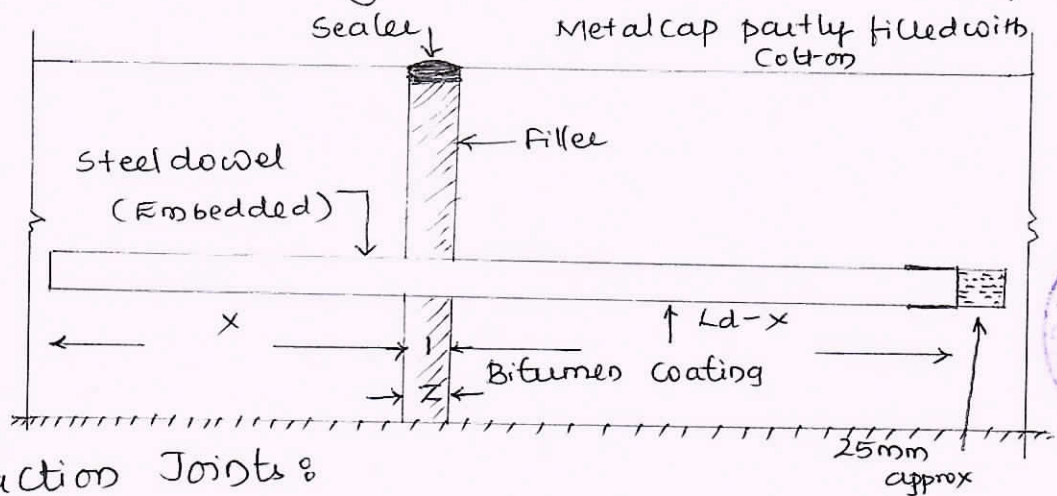 Sealer
Metal cap partly filled with
Cotton
Filler
Steel dowel
(Embedded)
X
Ld-x
Bitumen coating
Z
25mm
approx
ction Joints: